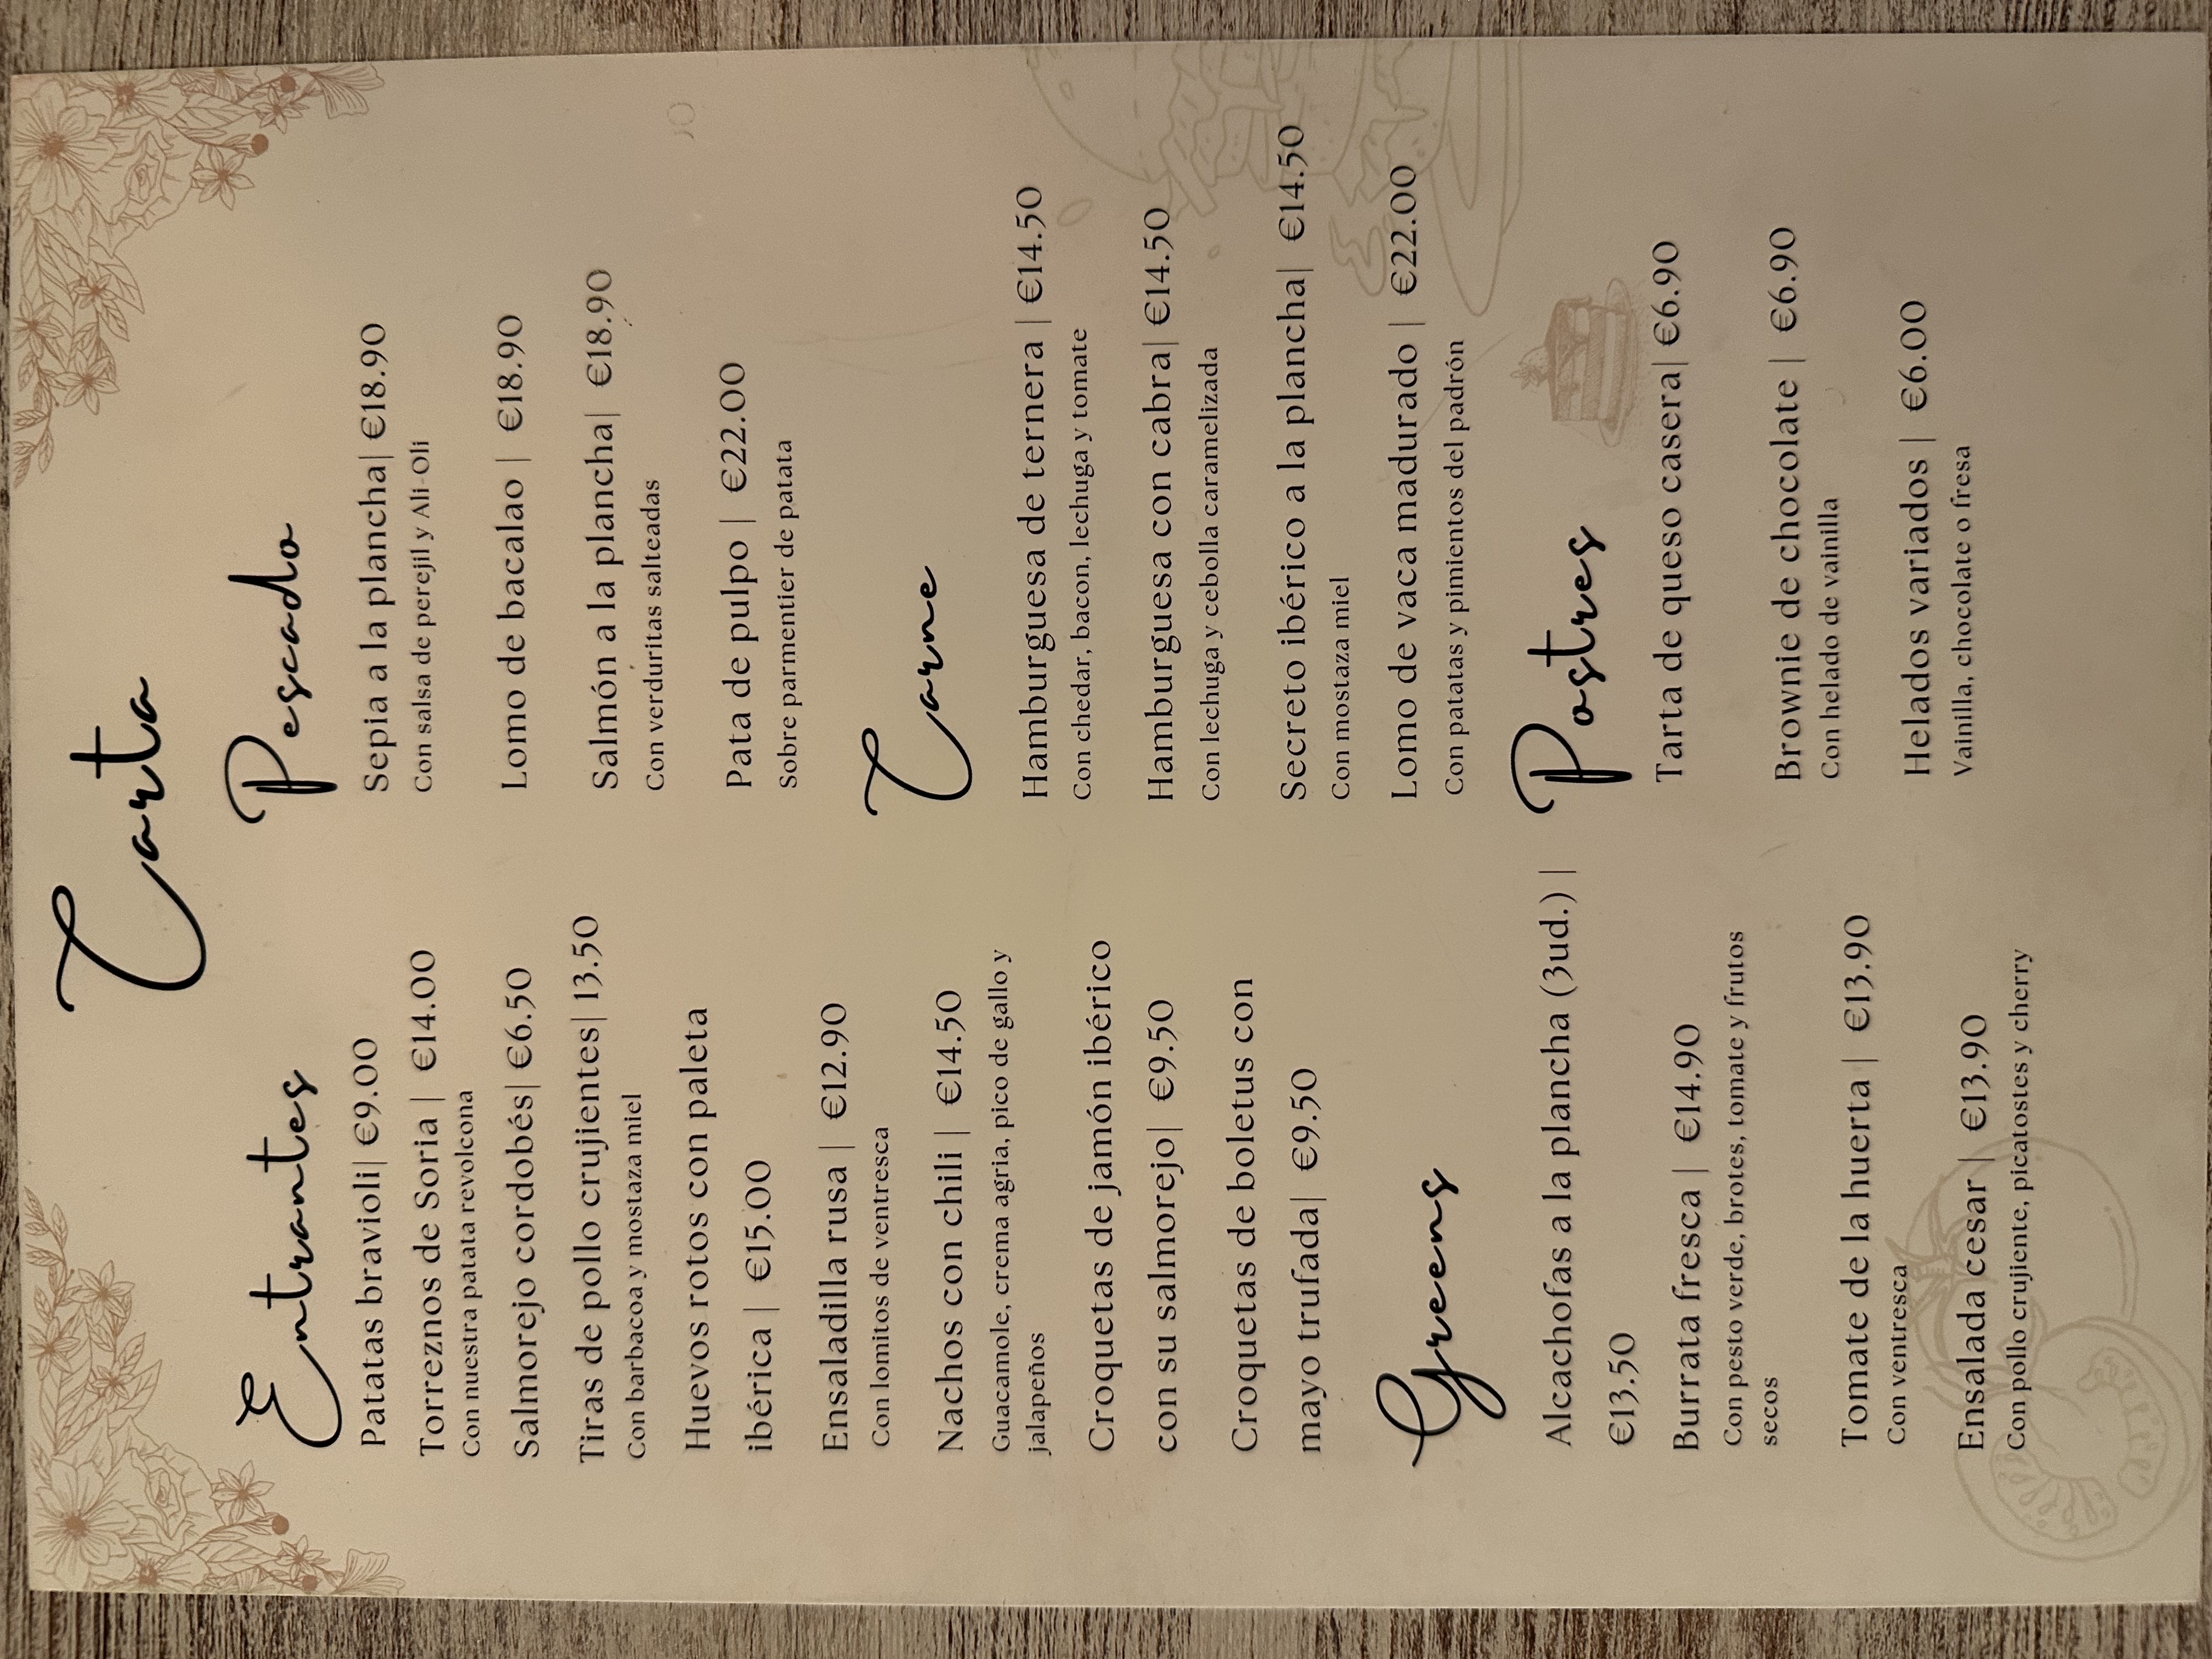 Carta
Entrantes
Patatas bravioli| €9.00
Torreznos de Soria | €14.00
Con nuestra patata revolcona
Salmorejo cordobés| €6.50
Tiras de pollo crujientes| 13.50
Con barbacoa y mostaza miel
Huevos rotos con paleta
ibérica | €15.00
Ensaladilla rusa | €12.90
Con lomitos de ventresca
Nachos con chili | €14.50
Guacamole, crema agria, pico de gallo y
jalapeños
Croquetas de jamón ibérico
con su salmorejo| €9.50
Croquetas de boletus con
mayo trufada| €9.50
Greens
Alcachofas a la plancha (3ud.) |
€13.50
Burrata fresca | €14.90
Con pesto verde, brotes, tomate y frutos
secos
Tomate de la huerta | €13.90
Con ventresca
Ensalada cesar | €13.90
Con pollo crujiente, picatostes y cherry
Pescado
Sepia a la plancha| €18.90
Con salsa de perejil y Ali-Oli
Lomo de bacalao | €18.90
Salmón a la plancha| €18.90
Con verduritas salteadas
Pata de pulpo | €22.00
Sobre parmentier de patata
Carne
Hamburguesa de ternera | €14.50
Con chedar, bacon, lechuga y tomate
Hamburguesa con cabra| €14.50
Con lechuga y cebolla caramelizada
Secreto ibérico a la plancha| €14.50
Con mostaza miel
Lomo de vaca madurado | €22.00
Con patatas y pimientos del padrón
Postres
Tarta de queso casera| €6.90
Brownie de chocolate | €6.90
Con helado de vainilla
Helados variados | €6.00
Vainilla, chocolate o fresa